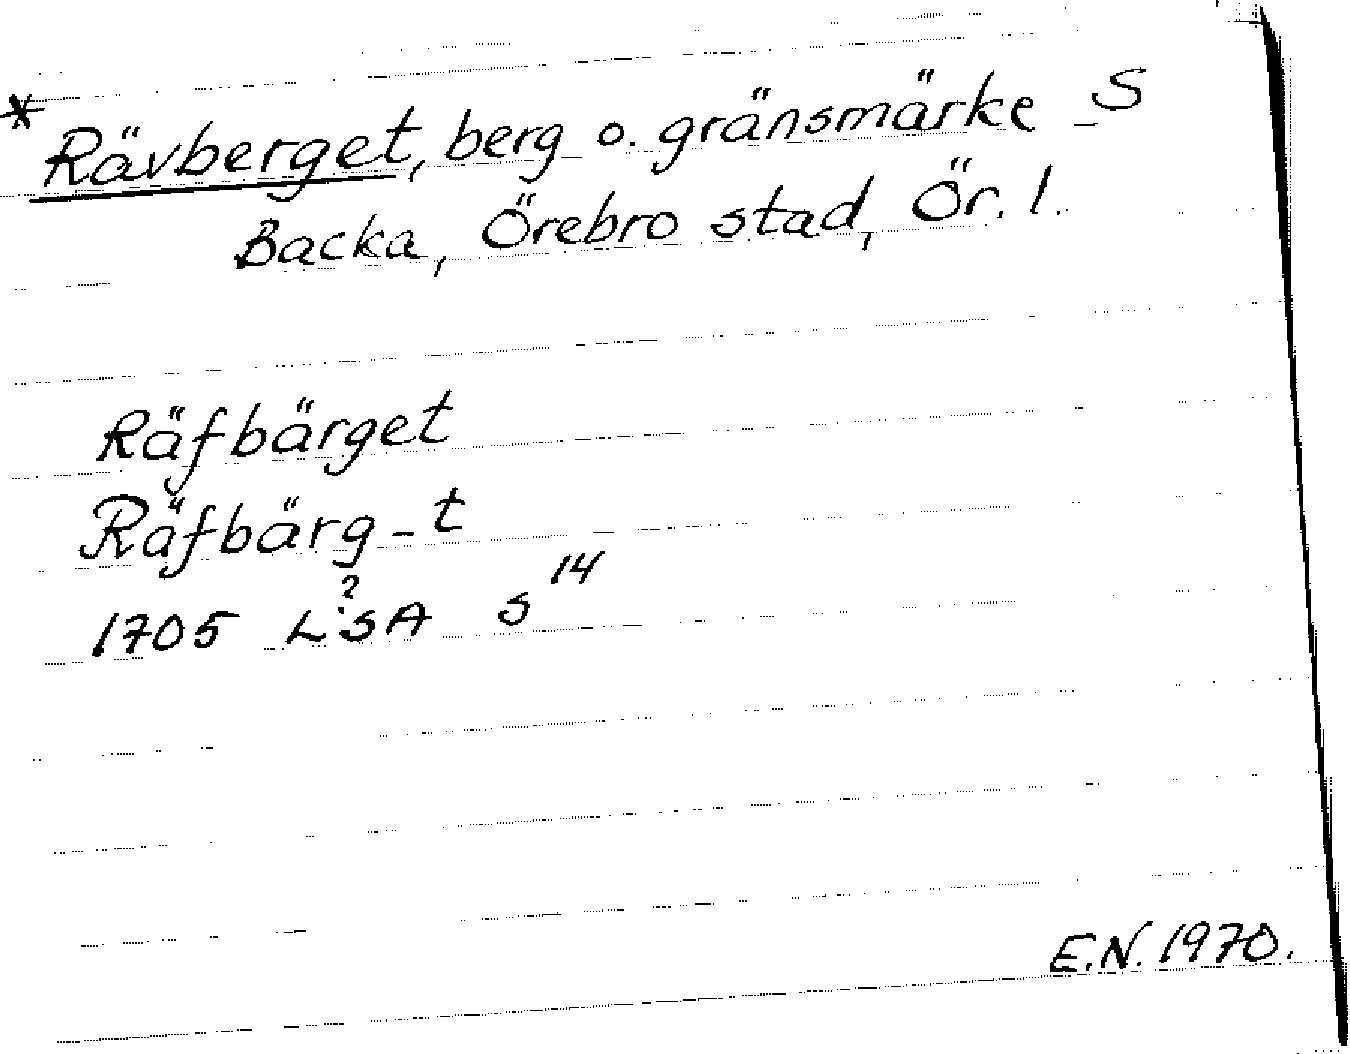 * Rävberget, berg o. gränsmärke S
Backa, Örebro stad, Ör. l.
Räfbärget
Räfbärg-t
1705 L?SA s 14
E.N. 1970.